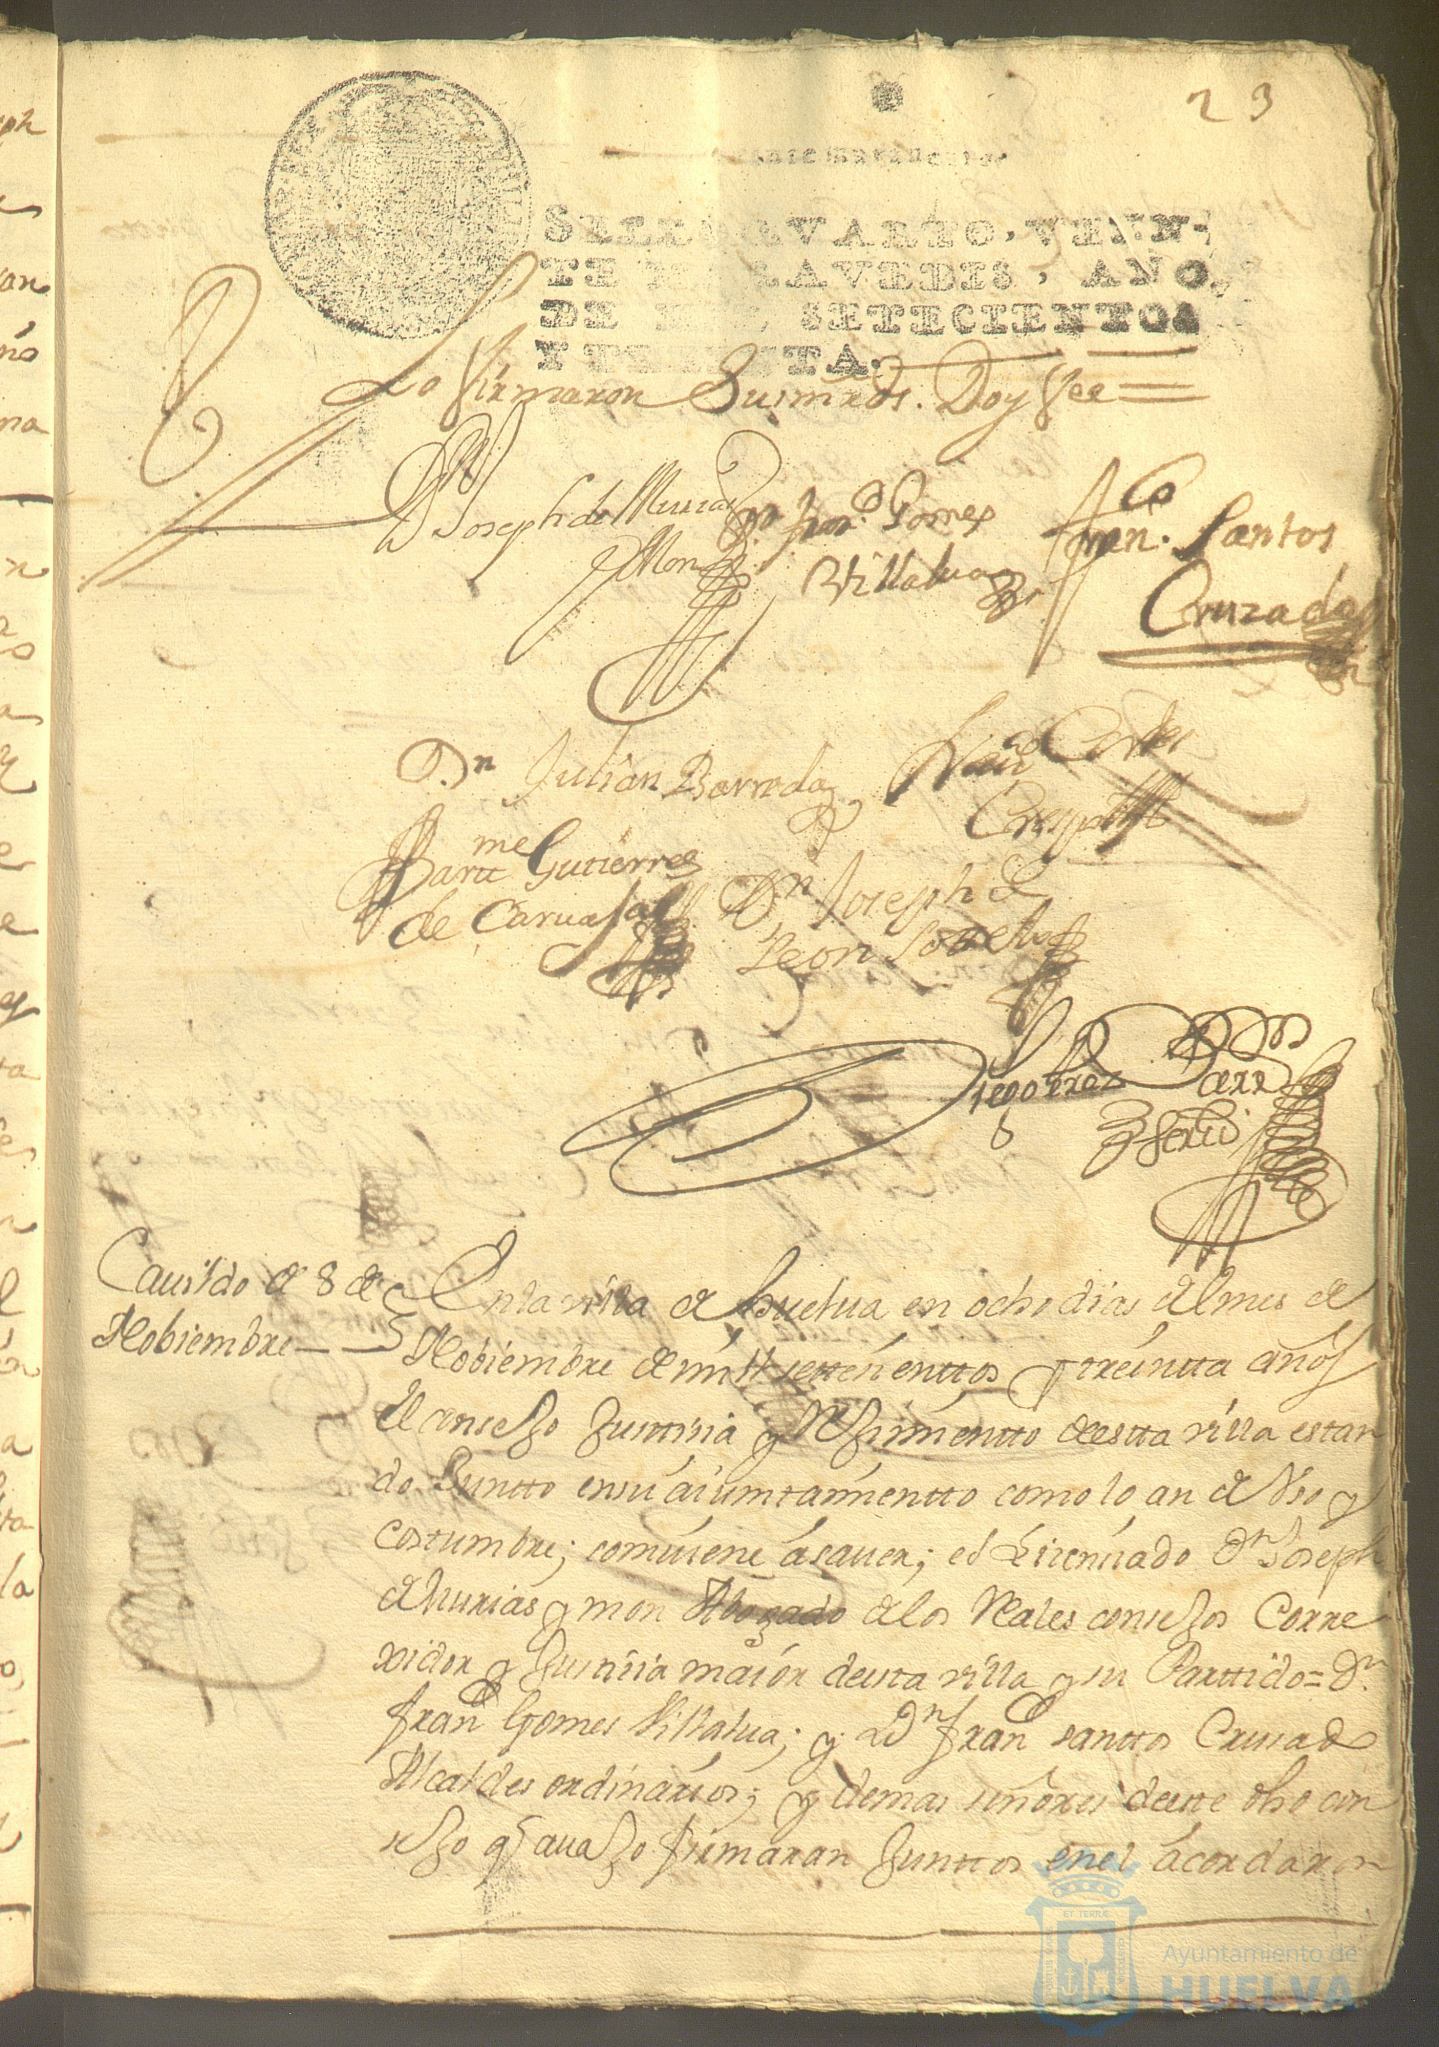 23
SELLO QVARTO, VEIN-
TE MARAVEDIS, AÑO
DE MIL SETECIENTOS
Y TREINTA.
Lo firmaron Susmrds. Doy fee
Dn Joseph de Murias
y Mon
Dn franco Gomes
Villalua
franco Santos
Cruzado
D.n Julian Barreda
Cortes
Crespo
Barttme Gutierres
de Caruajal
Dn Joseph de
Leon
Diego
Cauildo de 8 de
Nobiembre
En la villa de huelua en ocho dias del mes de
Nobiembre de mill settecienttos y treintta años
el consejo Justticia y Rejimientto de estta villa estan
do Juntto en su aiuntamientto como lo an de Vso y
costumbre; comuiene á sauer; el Licenciado Dn Joseph
de Murias y mon Abogado de los Reales consejos Corre
xidor y Justicia maior de esta villa y su Parttido = Dn
franco Gomes Villalua; y Dn franco santtos Crusado
Alcaldes ordinarios; y demas señores de este dho con
sejo q auajo firmaran Junttos en el acordaron
Ayuntamiento de
HUELVA